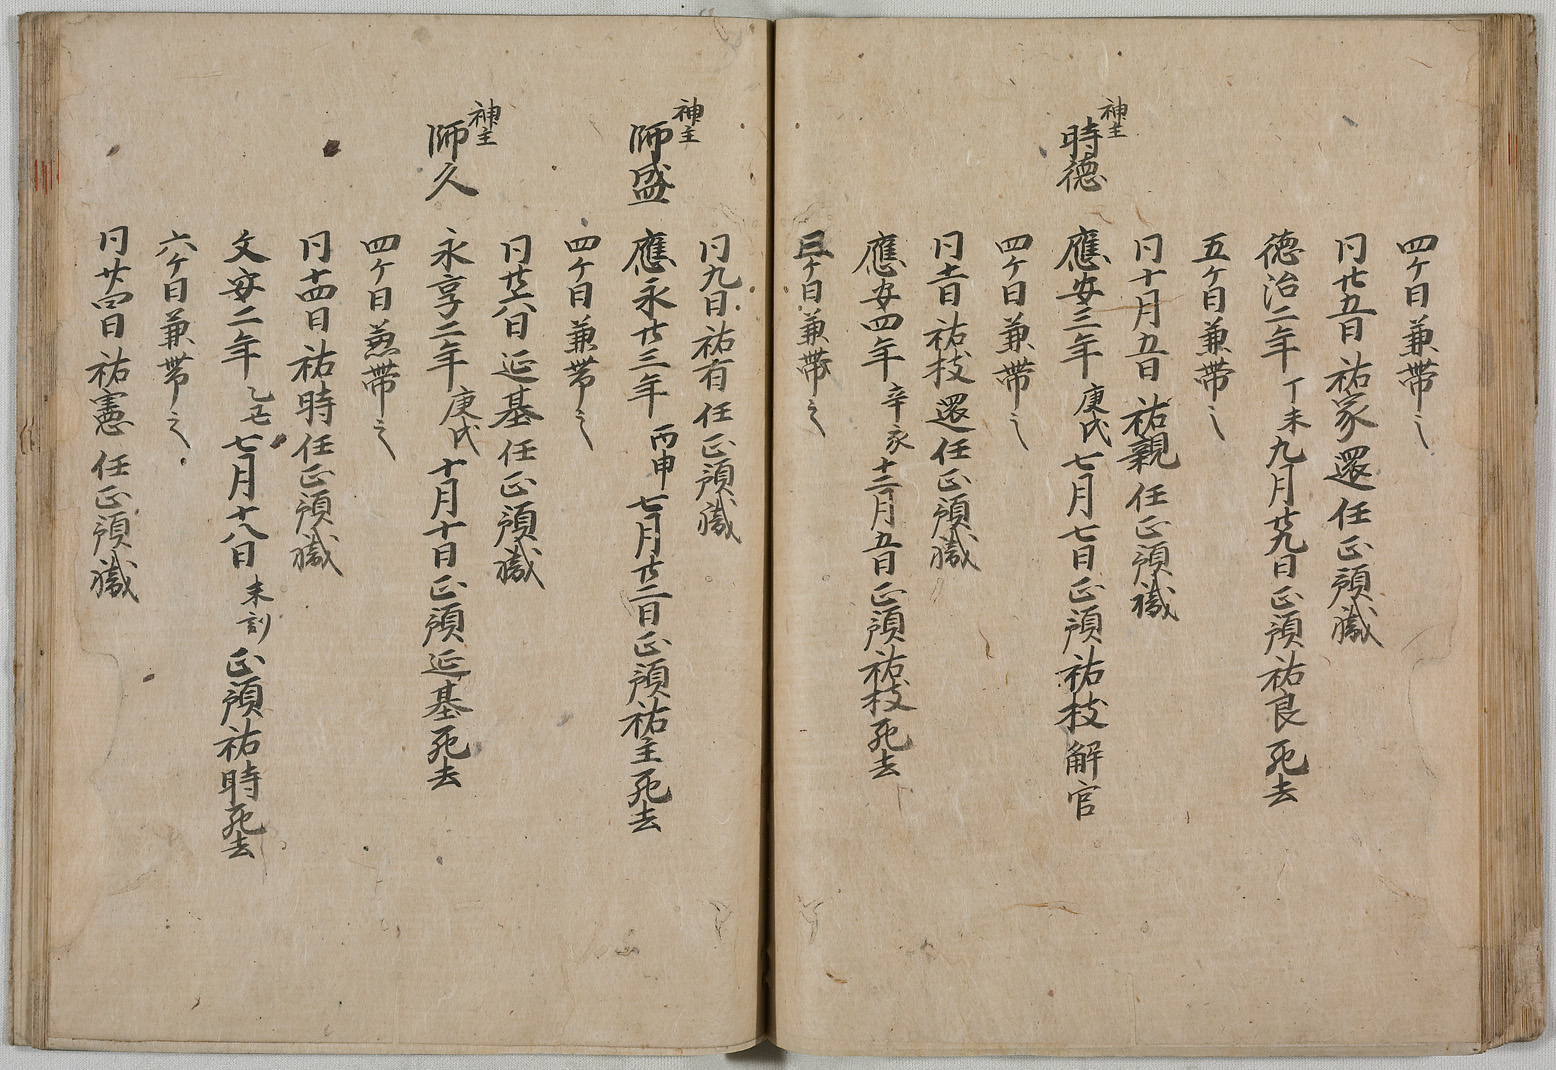 四ケ日兼帯之
同廿五日祐家還任正預職
徳治二年丁未九月廿九日正預祐良死去
五ケ日兼帯之
同十月五日祐親任正預職
神主
時徳
應安三年庚戌七月七日正預祐枝解官
四ケ日兼帯之
同十一日祐枝還任正預職
應安四年辛亥十二月五日正預祐枝死去
三ケ日兼帯之
同九日祐有任正預職
神主
師盛
應永廿三年丙申七月廿二日正預祐主死去
四ケ日兼帯之
同廿六日延基任正預職
神主
師久
永享二年庚戌十月十日正預延基死去
四ケ日兼帯之
同十四日祐時任正預職
文安二年乙丑七月十八日未刻正預祐時死去
六ケ日兼帯之
同廿四日祐憲任正預職